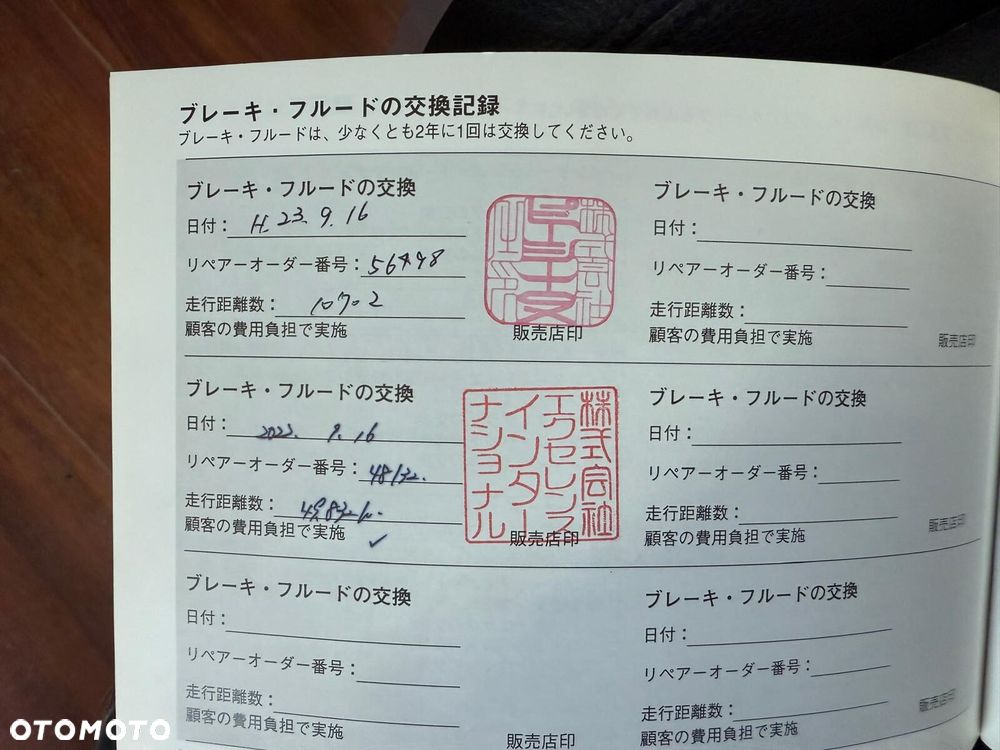 ブレーキ・フルードの交換記録
ブレーキ・フルードは、少なくとも2年に1回は交換してください。
ブレーキ・フルードの交換
日付： H. 23. 9. 16
リペアーオーダー番号： 56498
走行距離数： 10702
顧客の費用負担で実施
販売店印
ブレーキ・フルードの交換
日付：
リペアーオーダー番号：
走行距離数：
顧客の費用負担で実施
販売店印
ブレーキ・フルードの交換
日付： 2022. 9. 16
リペアーオーダー番号：
走行距離数：
顧客の費用負担で実施
株式会社
エクセレンス
インター
ナショナル
販売店印
ブレーキ・フルードの交換
日付：
リペアーオーダー番号：
走行距離数：
顧客の費用負担で実施
販売店印
ブレーキ・フルードの交換
日付：
リペアーオーダー番号：
走行距離数：
顧客の費用負担で実施
販売店印
ブレーキ・フルードの交換
日付：
リペアーオーダー番号：
走行距離数：
顧客の費用負担で実施
販売店印
OTOMOTO